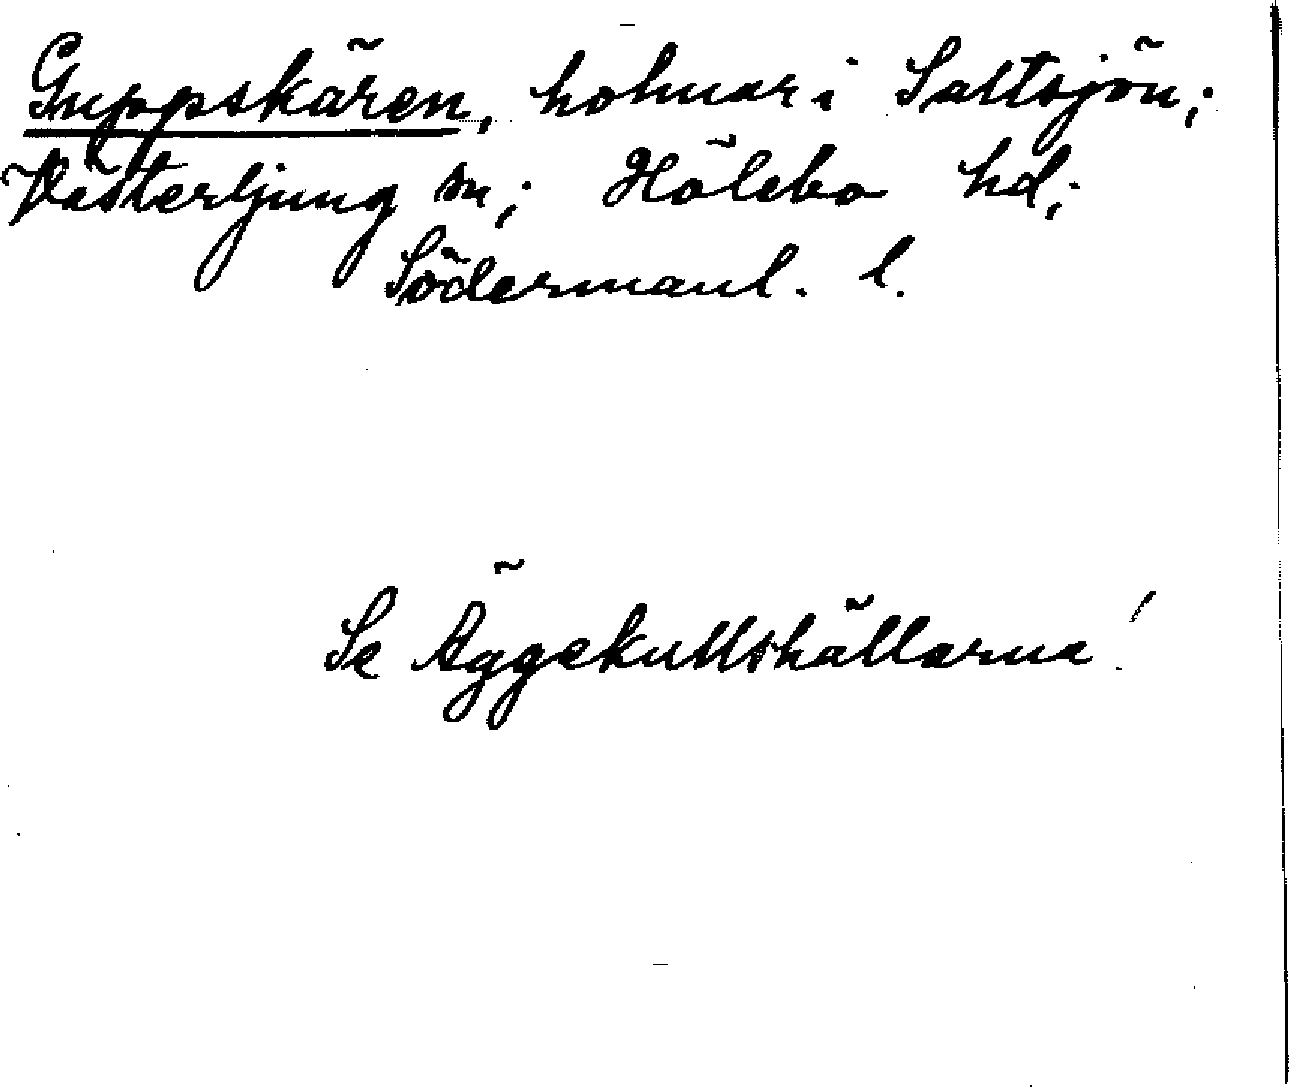 Guppskären, holmar i Saltsjön;
Västerljung sn; Hölebo hd;
Södermanl. l.
Se Äggekullshällarna!